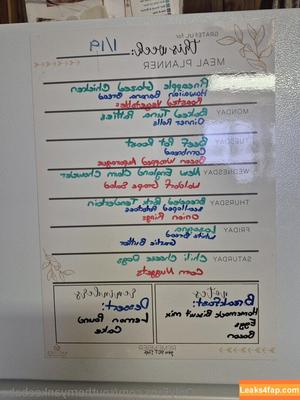 GRATEFUL for
this week: 1/19
MEAL PLANNER
Pineapple Glazed Chicken
Hawaiian Banana Bread
Roasted Vegetables
MONDAY
Baked Tuna Patties
Dinner Rolls
TUESDAY
Beef Pot Roast
Cornbread
Bacon Wrapped Asparagus
WEDNESDAY
New England Clam Chowder
Waldorf Grape Salad
THURSDAY
Breaded Pork Tenderloin
Scalloped Potatoes
Onion Rings
FRIDAY
Lasagna
White Bread
Garlic Butter
SATURDAY
Chili Cheese Dogs
Corn Nuggets
notes
Breakfast:
Homemade Biscuit mix
Eggs
Bacon
reminders
Dessert:
Lemon Pound
Cake
REMEMBER
you GOT this
Leaks4fap.com